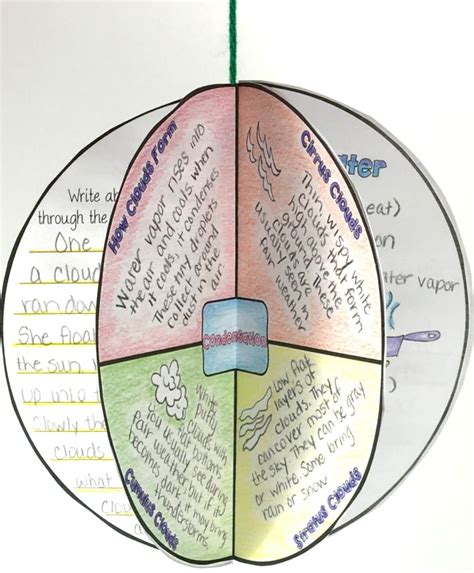 How Clouds Form
Water vapor rises into
the air and cools. When
it cools, it condenses
These tiny droplets
collect around
dust in the
air.
Cirrus Clouds
Thin, wispy white
clouds that form
high above the
ground. These
clouds are
usually seen in
fair weather
Condensation
White
puffy
clouds with
flat bottoms.
You usually see during
fair weather but if it
becomes dark, it may bring
thunderstorms.
Cumulus Clouds
Low, flat
layers of
clouds. They
can cover most of
the sky. They can be gray
or white. Some bring
rain or snow
Stratus Clouds
Write
through the
One
a cloud
ran down
She float
the sun.
up into t
Slowly the
clouds
what
Clou
ater
eat)
an
ter vapor